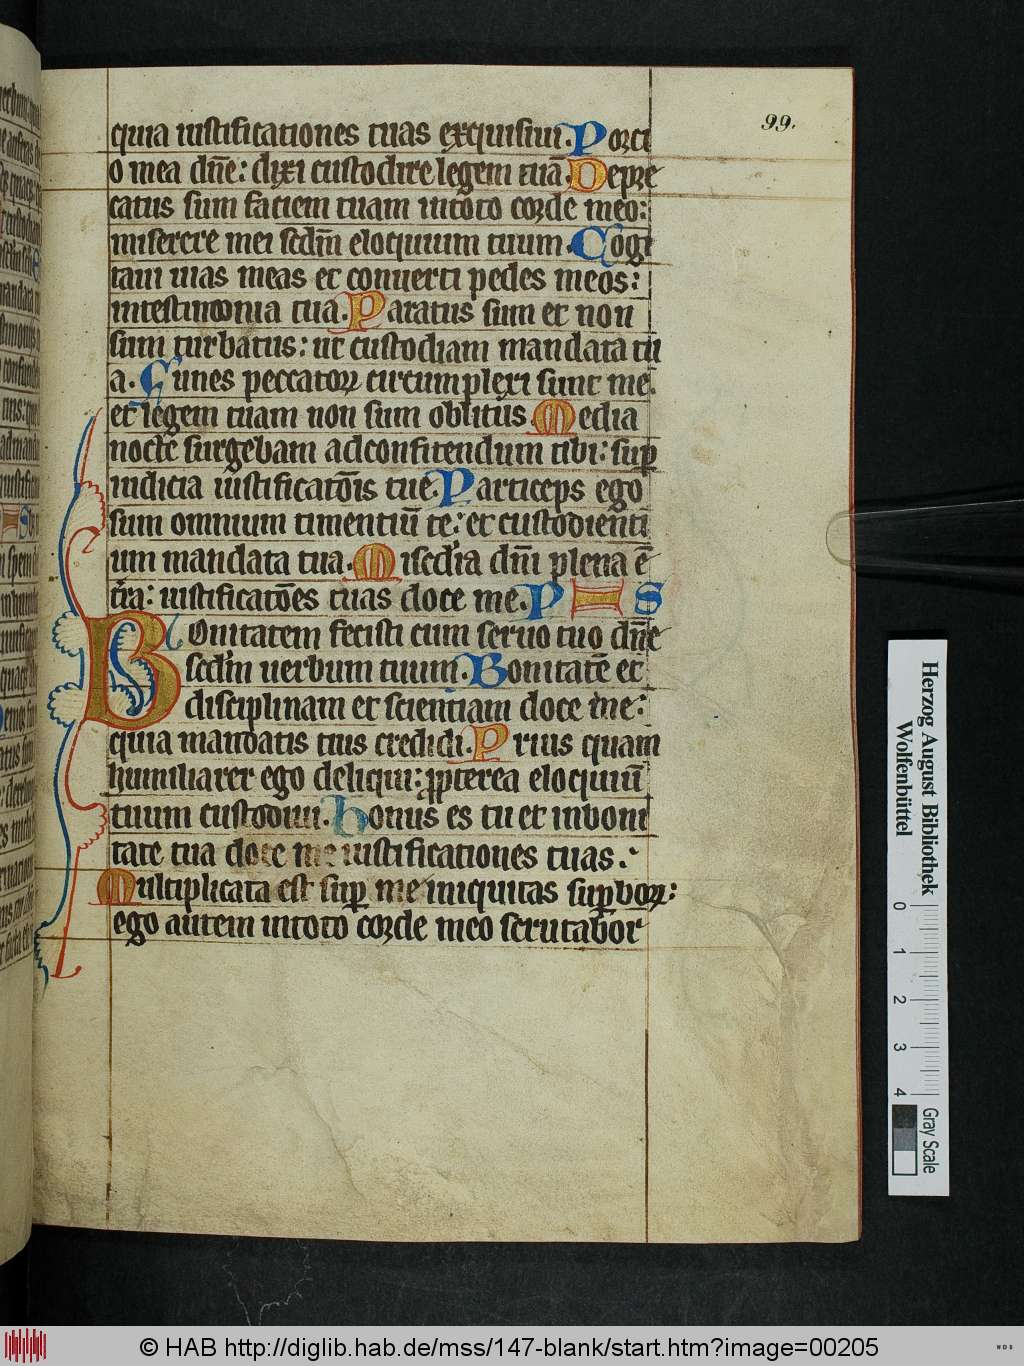 99.
quia iustificationes tuas exquisiui. Porci
o mea dñe: dixi custodire legem tuā. Depre
catus sum faciem tuam intoto corde meo:
miserere mei scdm̄ eloquium tuum. Cogi
taui uias meas et conuerti pedes meos:
intestimonia tua. Paratus sum et non
sum turbatus: ut custodiam mandata tu
a. Funes peccatoꝝ circumplexi sunt me:
et legem tuam non sum oblitus. Media
nocte surgebam adconfitendum tibi: suꝑ
iudicia iustificatōis tue. Particeps ego
sum omnium timentiū te: et custodienti
um mandata tua. Miscd'ia dñi plena ē
t'ra: iustificatōes tuas doce me. P I S
Bonitatem fecisti cum seruo tuo dñe
scd'm uerbum tuum. Bonitatē et
disciplinam et scientiam doce me:
quia mandatis tuis credidi. Prius quam
humiliarer ego deliqui: ꝓpterea eloquiū
tuum custodiui. Bonus es tu et inboni
tate tua doce me iustificationes tuas.
Multiplicata est suꝑ me iniquitas suꝑboꝝ:
ego autem intoto corde meo scrutabor
Herzog August Bibliothek
Wolfenbüttel
0 1 2 3 4
Gray Scale
© HAB http://diglib.hab.de/mss/147-blank/start.htm?image=00205